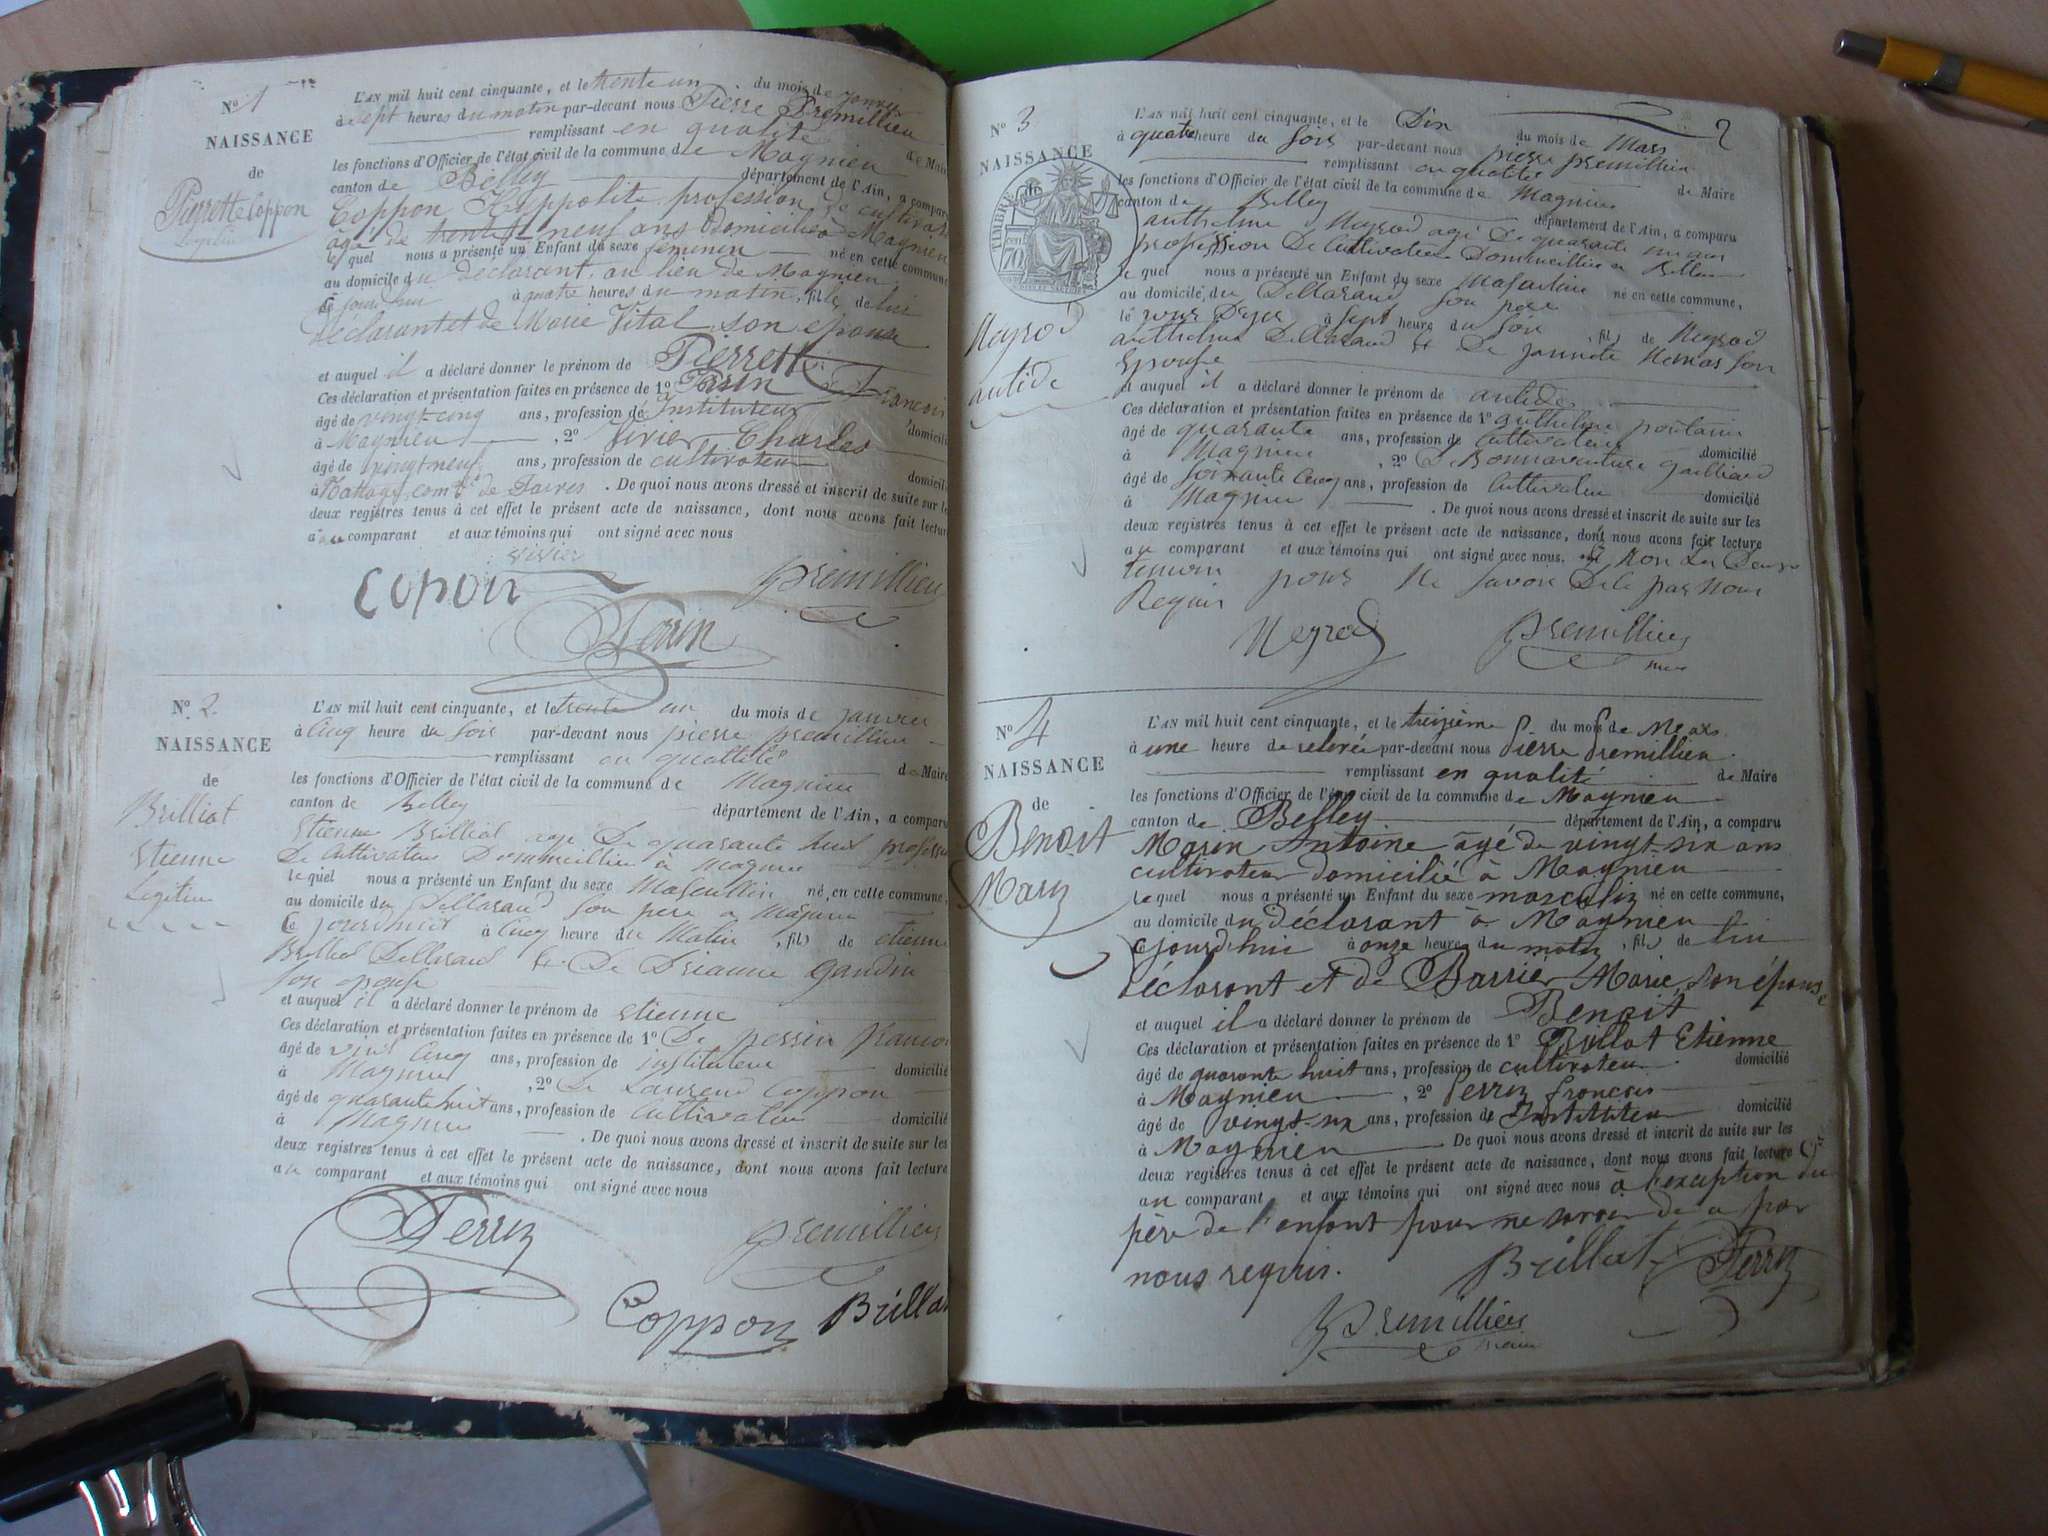 N.o 1
NAISSANCE
de
Pierrette Coppon
L'AN mil huit cent cinquante, et le trente un du mois de janvier
à sept heures du matin par-devant nous Pierre Premillieu
remplissant en qualité de Maire
les fonctions d'Officier de l'état civil de la commune de Magnieu
canton de Belley département de l'Ain, a comparu
Coppon Hippolite profession de cultivateur
âgé de trente neuf ans domicilié à Magnieu
lequel nous a présenté un Enfant du sexe féminin né en cette commune
au domicile du déclarant, au lieu de Magnieu
ce jourd'hui à quatre heures du matin, fille de lui
déclarant et de Marie Vital son épouse
et auquel il a déclaré donner le prénom de Pierrette
Ces déclaration et présentation faites en présence de 1o Perrin François
âgé de vingt-cinq ans, profession de Instituteur domicilié
à Magnieu , 2o Sivier Charles
âgé de vingt neuf ans, profession de cultivateur domicilié
à de Parves . De quoi nous avons dressé et inscrit de suite sur les
deux registres tenus à cet effet le présent acte de naissance, dont nous avons fait lecture
au comparant et aux témoins qui ont signé avec nous
Sivier
Copon Premillieu
Perrin
N.o 2
NAISSANCE
de
Brilliat
Etienne
Legitime
L'AN mil huit cent cinquante, et le trente un du mois de janvier
à Cinq heure du soir par-devant nous pierre premillieu
remplissant en quallité de Maire
les fonctions d'Officier de l'état civil de la commune de Magnieu
canton de Belley département de l'Ain, a comparu
Etienne Brilliat age De quarante huit profession
De Cultivateur Dommicillier à Magnieu
lequel nous a présenté un Enfant du sexe Mascullin né en cette commune,
au domicile du Dellarand son pere a Magnieu
Ce jourdhuit à Cinq heure du Matin , fils de etienne
Brilliat Dellarand et De Drianne gandin
son epouse
et auquel il a déclaré donner le prénom de etienne
Ces déclaration et présentation faites en présence de 1o De perrin francoi
âgé de vint cinq ans, profession de instituteur domicilié
à Magnieu , 2o De Laurend Coppon
âgé de quarante huit ans, profession de Cultivateur domicilié
à Magnieu . De quoi nous avons dressé et inscrit de suite sur les
deux registres tenus à cet effet le présent acte de naissance, dont nous avons fait lecture
au comparant et aux témoins qui ont signé avec nous
Perrin premillieu
Coppon Brillat
2
N.o 3
NAISSANCE
de
TIMBRE
70
Neyrod
antide
L'AN mil huit cent cinquante, et le Dix du mois de Mars
à quatre heure du soir par-devant nous pierre premillieu
remplissant en quallité de Maire
les fonctions d'Officier de l'état civil de la commune de Magnieu
canton de Belley département de l'Ain, a comparu
anthelme Neyrod agé De quarante
profession De Cultivateur Dommicillier a
le quel nous a présenté un Enfant du sexe Masculin né en cette commune,
au domicile du Dellarand son pere
le jour à sept heure du soir , fils de Neyrod
anthelme Dellarand et De jannete son
Epouse
et auquel il a déclaré donner le prénom de antide
Ces déclaration et présentation faites en présence de 1o anthelme
âgé de quarante ans, profession de Cultivateur domicilié
à Magnieu , 2o De Bonnaventure gailliard
âgé de soixante Cinq ans, profession de Cultivateur domicilié
à Magnieu . De quoi nous avons dressé et inscrit de suite sur les
deux registres tenus à cet effet le présent acte de naissance, dont nous avons fait lecture
au comparant et aux témoins qui ont signé avec nous. et Non Les Deux
temoin pour Ne savoir De Ce par Nous
Requis
Neyrod premillieu
N.o 4
NAISSANCE
de
Benoit
Marin
L'AN mil huit cent cinquante, et le treizième du mois de Mars
à une heure de relevée par-devant nous Pierre Premillieu
remplissant en qualité de Maire
les fonctions d'Officier de l'état civil de la commune de Magnieu
canton de Belley département de l'Ain, a comparu
Marin Antoine âgé de vingt-six ans
cultivateur domicilié à Magnieu
lequel nous a présenté un Enfant du sexe masculin né en cette commune,
au domicile du déclarant à Magnieu
Ce jourd'hui à onze heures du matin , fils de lui
déclarant et de Barrier Marie son épouse
et auquel il a déclaré donner le prénom de Benoit
Ces déclaration et présentation faites en présence de 1o Brillat Etienne
âgé de quarante huit ans, profession de cultivateur domicilié
à Magnieu , 2o Perrin françois
âgé de vingt-six ans, profession de Instituteur domicilié
à Magnieu De quoi nous avons dressé et inscrit de suite sur les
deux registres tenus à cet effet le présent acte de naissance, dont nous avons fait lecture
au comparant et aux témoins qui ont signé avec nous à l'exception du
père de l'enfant pour ne savoir de ce par
nous requis.
Brillat Perrin
Premillieu